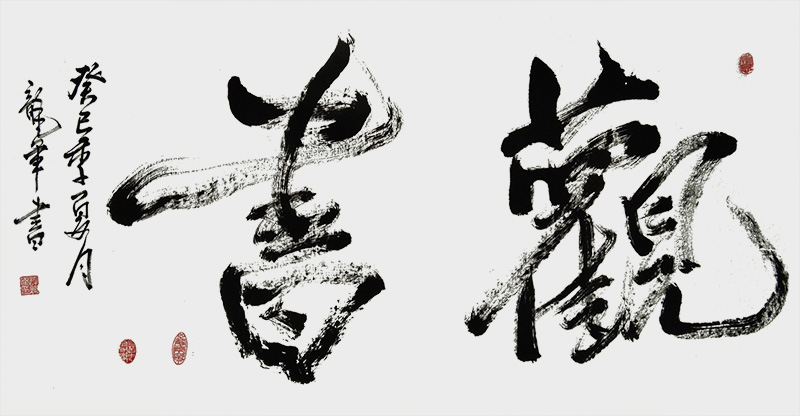 觀書
癸巳年夏月
龍華書